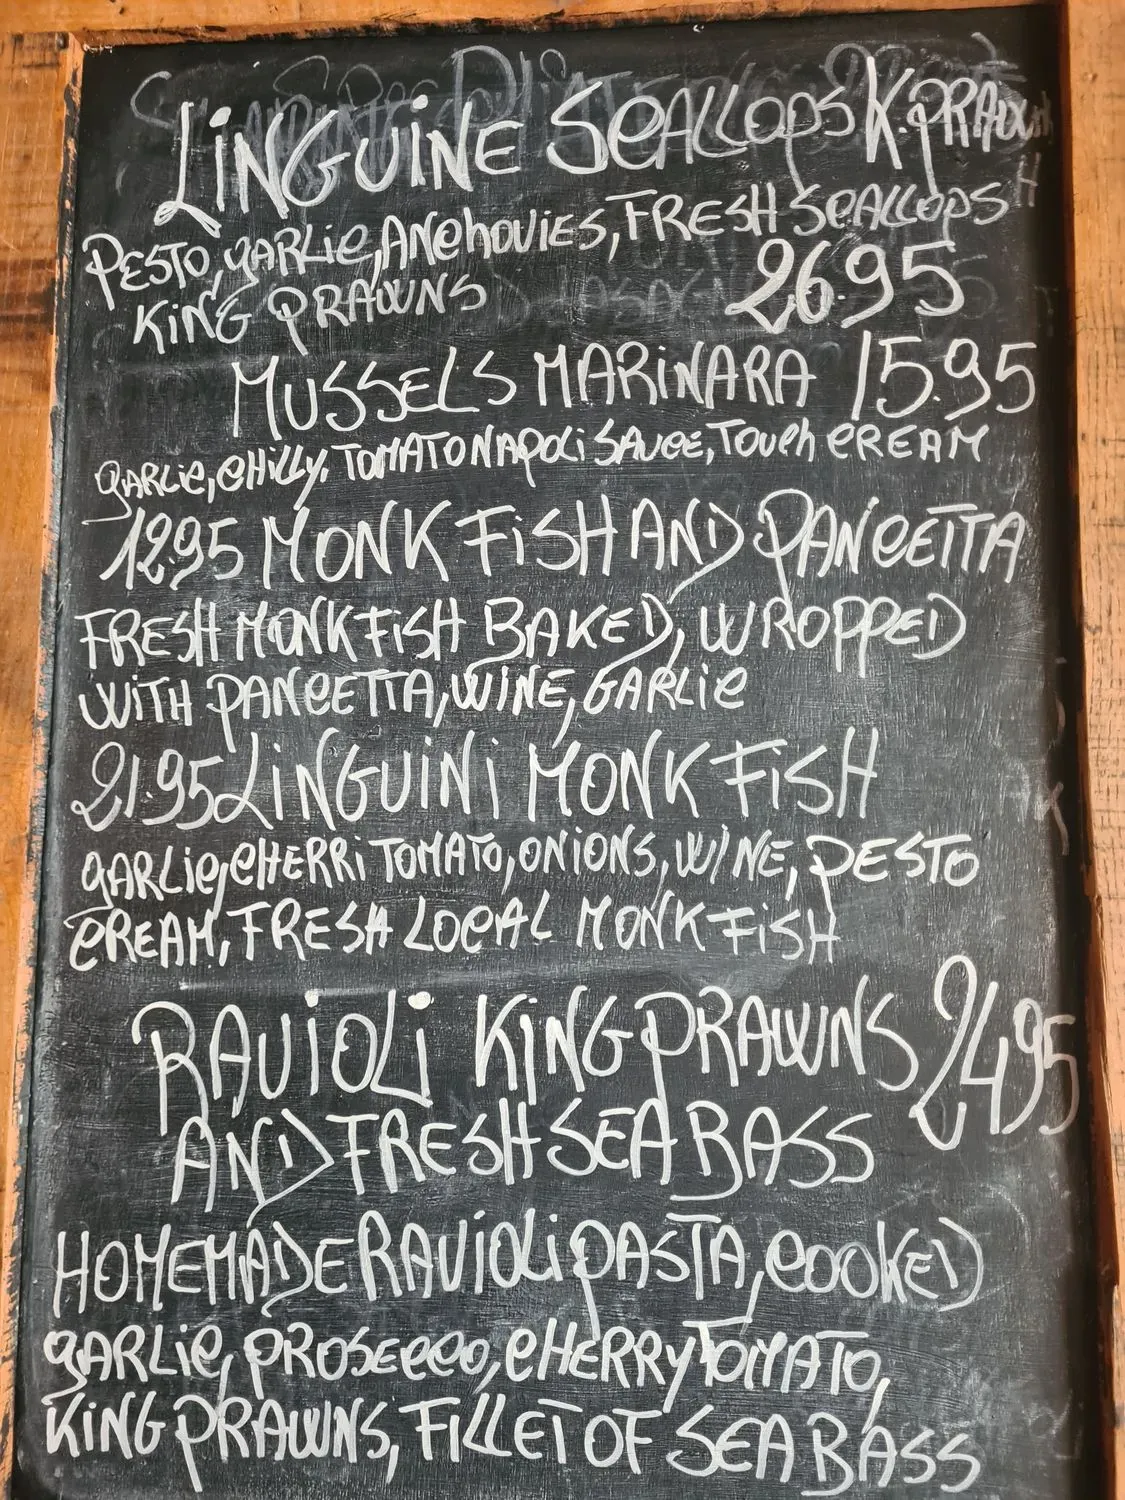 LINGUINE SCALLOPS K. PRAWN
PESTO, GARLIC, ANCHOVIES, FRESH SCALLOPS
KING PRAWNS 26.95
MUSSELS MARINARA 15.95
GARLIC, CHILLY, TOMATO NAPOLI SAUCE, TOUCH CREAM
12.95 MONK FISH AND PANCETTA
FRESH MONKFISH BAKED, WROPPED
WITH PANCETTA, WINE, GARLIC
21.95 LINGUINI MONK FISH
GARLIC, CHERRI TOMATO, ONIONS, WINE, PESTO
CREAM, FRESH LOCAL MONK FISH
RAVIOLI KING PRAWNS 24.95
AND FRESH SEA BASS
HOMEMADE RAVIOLI PASTA, COOKED
GARLIC, PROSECCO, CHERRY TOMATO,
KING PRAWNS, FILLET OF SEA BASS